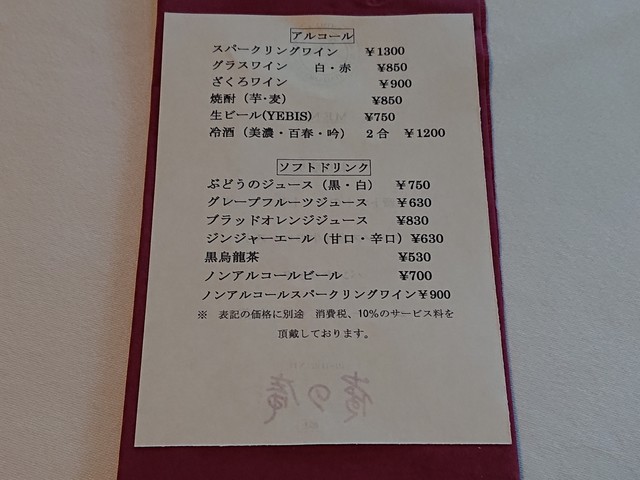 アルコール
スパークリングワイン ￥1300
グラスワイン 白・赤 ￥850
ざくろワイン ￥900
焼酎（芋･麦） ￥850
生ビール(YEBIS) ￥750
冷酒（美濃・百春・吟） 2合 ￥1200
ソフトドリンク
ぶどうのジュース（黒・白） ￥750
グレープフルーツジュース ￥630
ブラッドオレンジジュース ￥830
ジンジャーエール（甘口・辛口）￥630
黒烏龍茶 ￥530
ノンアルコールビール ￥700
ノンアルコールスパークリングワイン￥900
※ 表記の価格に別途 消費税、10%のサービス料を
頂戴しております。